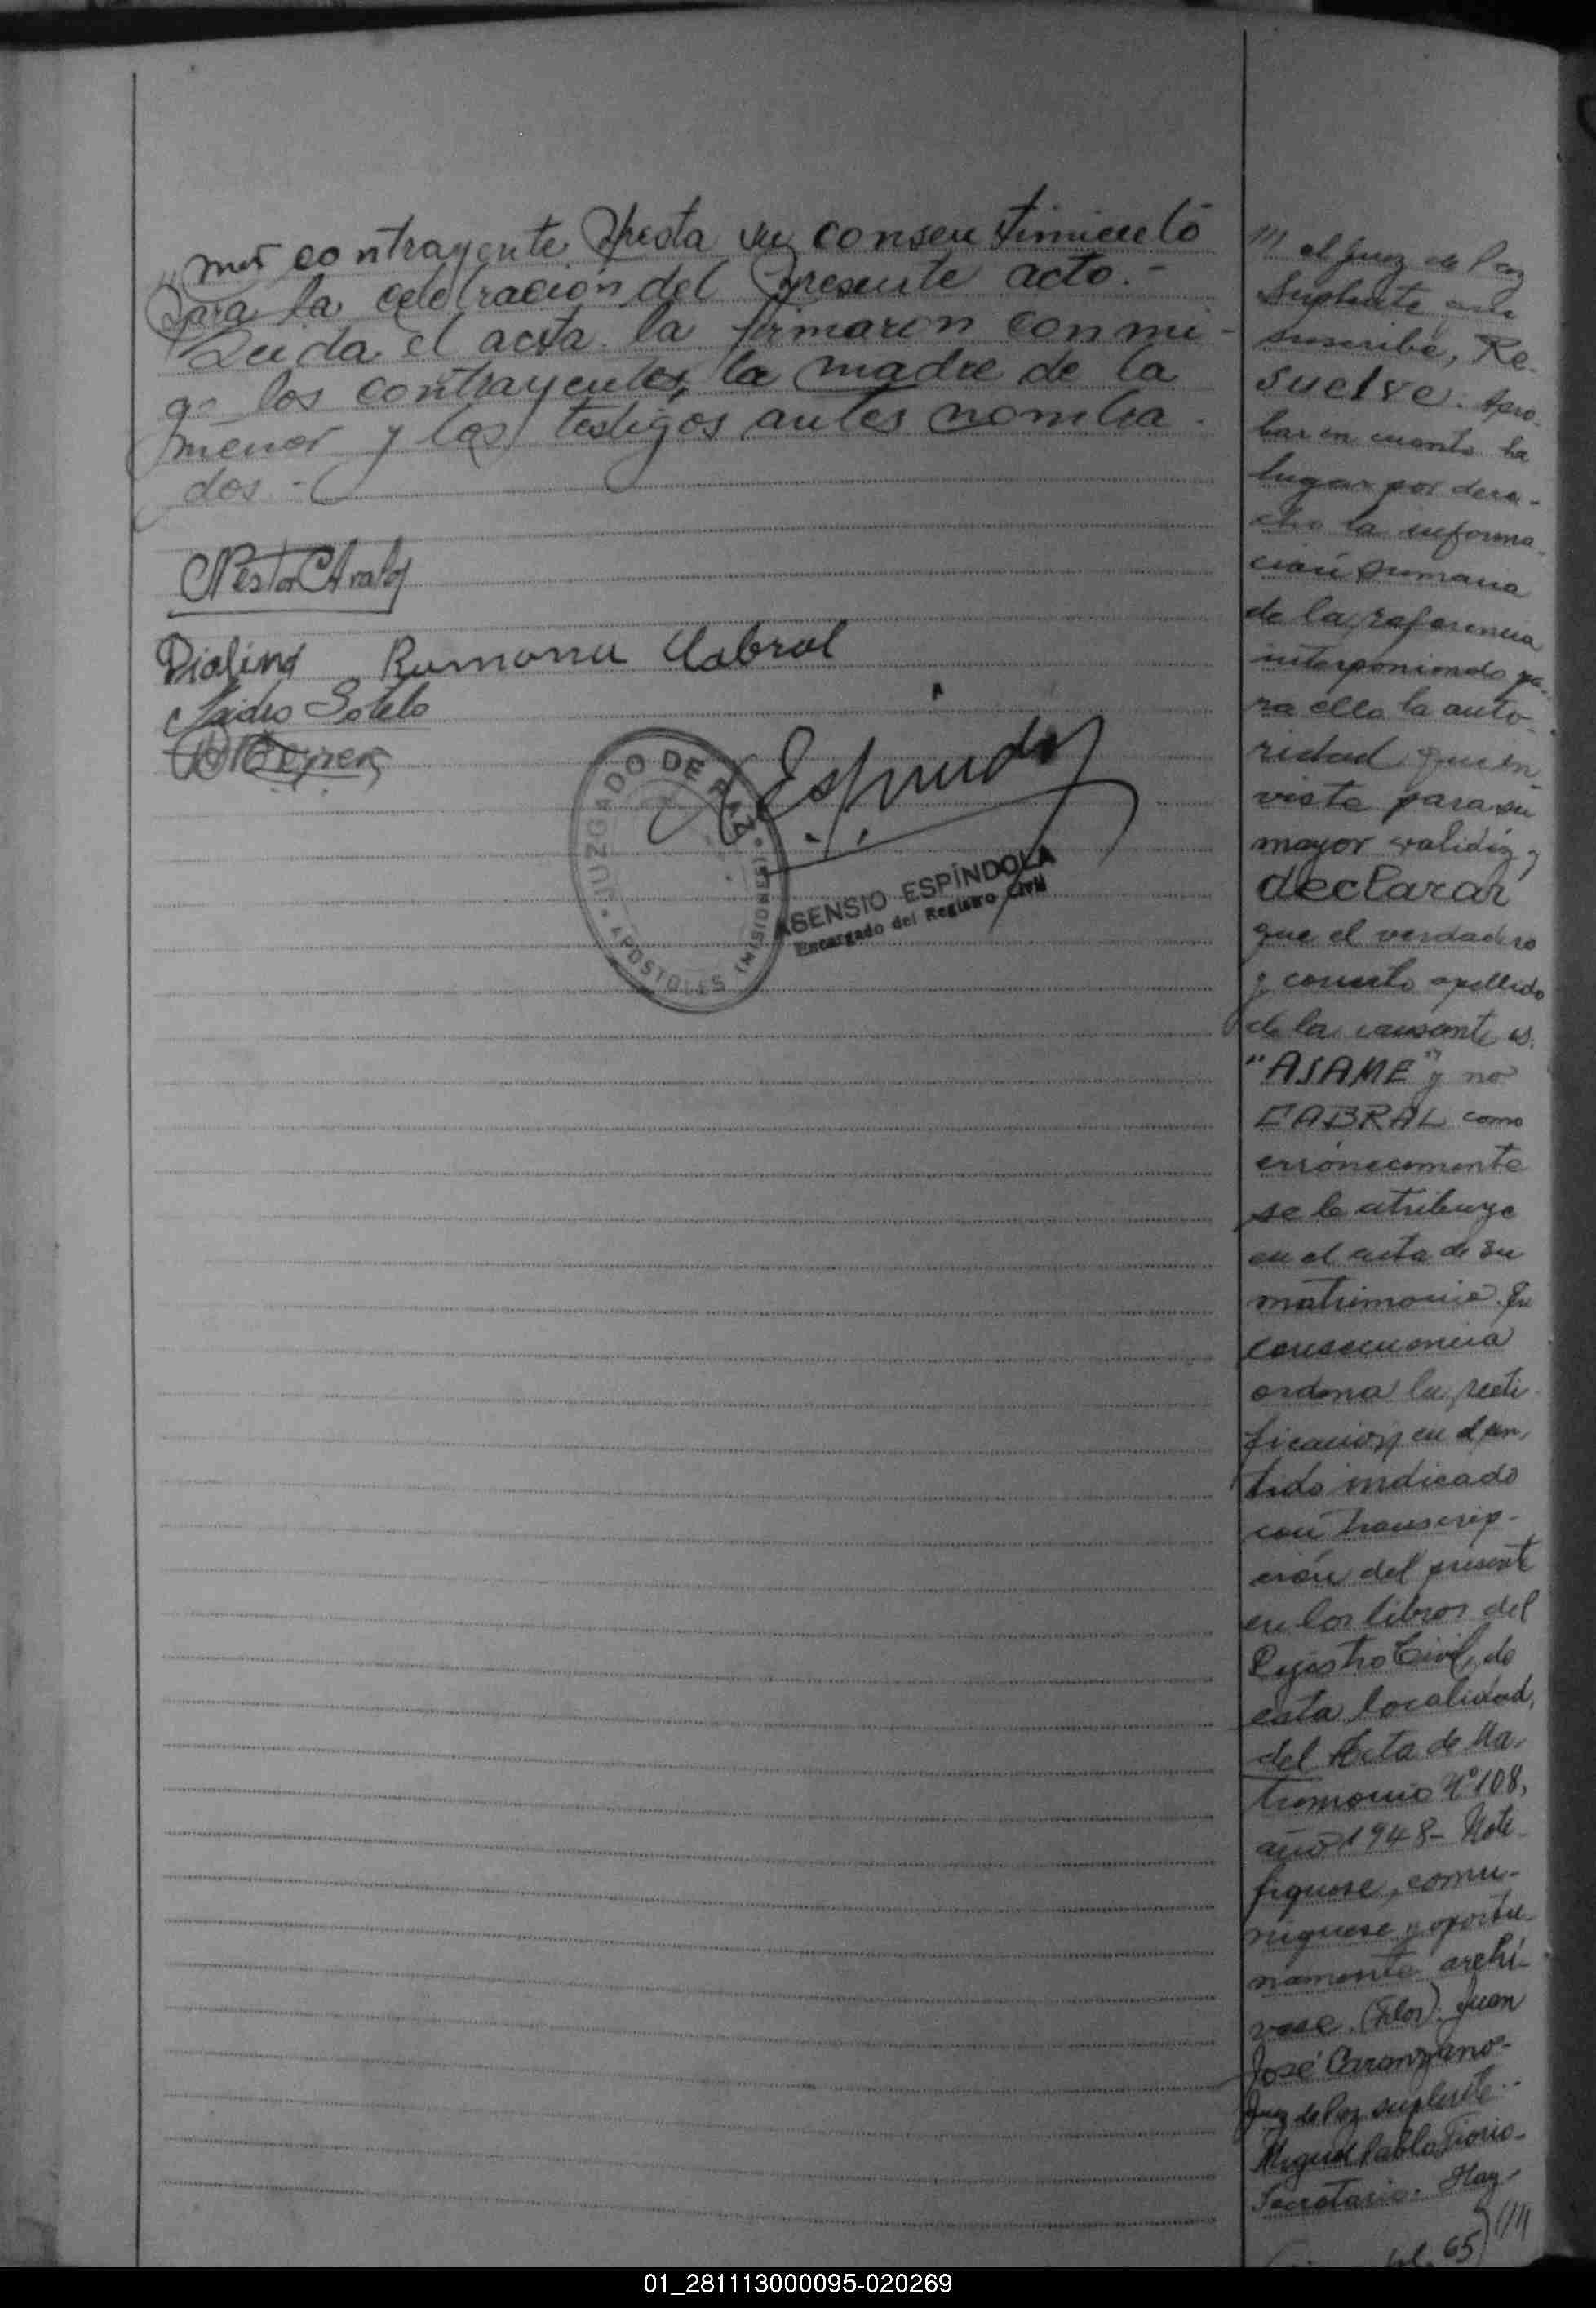 mer contrayente presta su consentimiento
para la celebración del presente acto.-
Leida el acta la firmaron conmi-
go los contrayentes, la madre de la
menor y los testigos antes nombra-
dos.-
Ramona Cabral
Isidro Sotelo
JUZGADO DE PAZ
APOSTOLES (MISIONES)
ASENSIO ESPÍNDOLA
Encargado del Registro Civil
/// el Juez de Paz
Suplente que
suscribe, Re-
suelve: Apro-
bar en cuanto ha
lugar por dere-
cho la informa-
ción sumaria
de la referencia
interponiendo pa-
ra ello la auto-
ridad que in
viste para su
mayor validéz y
declarar
que el verdadero
y correcto apellido
de la causante es:
"ASAME" y no
CABRAL como
erróneamente
se le atribuye
en el acta de su
matrimonio. En
consecuencia
ordena la recti-
ficación en el sen-
tido indicado
con transcrip-
ción del presente
en los libros del
Registro Civil de
esta localidad,
del Acta de Ma-
trimonio Nº 108,
año 1948- Noti-
fíquese, comu-
níquese y oportu-
namente archí-
vese. (Fdos): Juan
José
Juez de Paz suplente.-
Miguel Pablo
Secretario. Hay-
65 ////
01_281113000095-020269